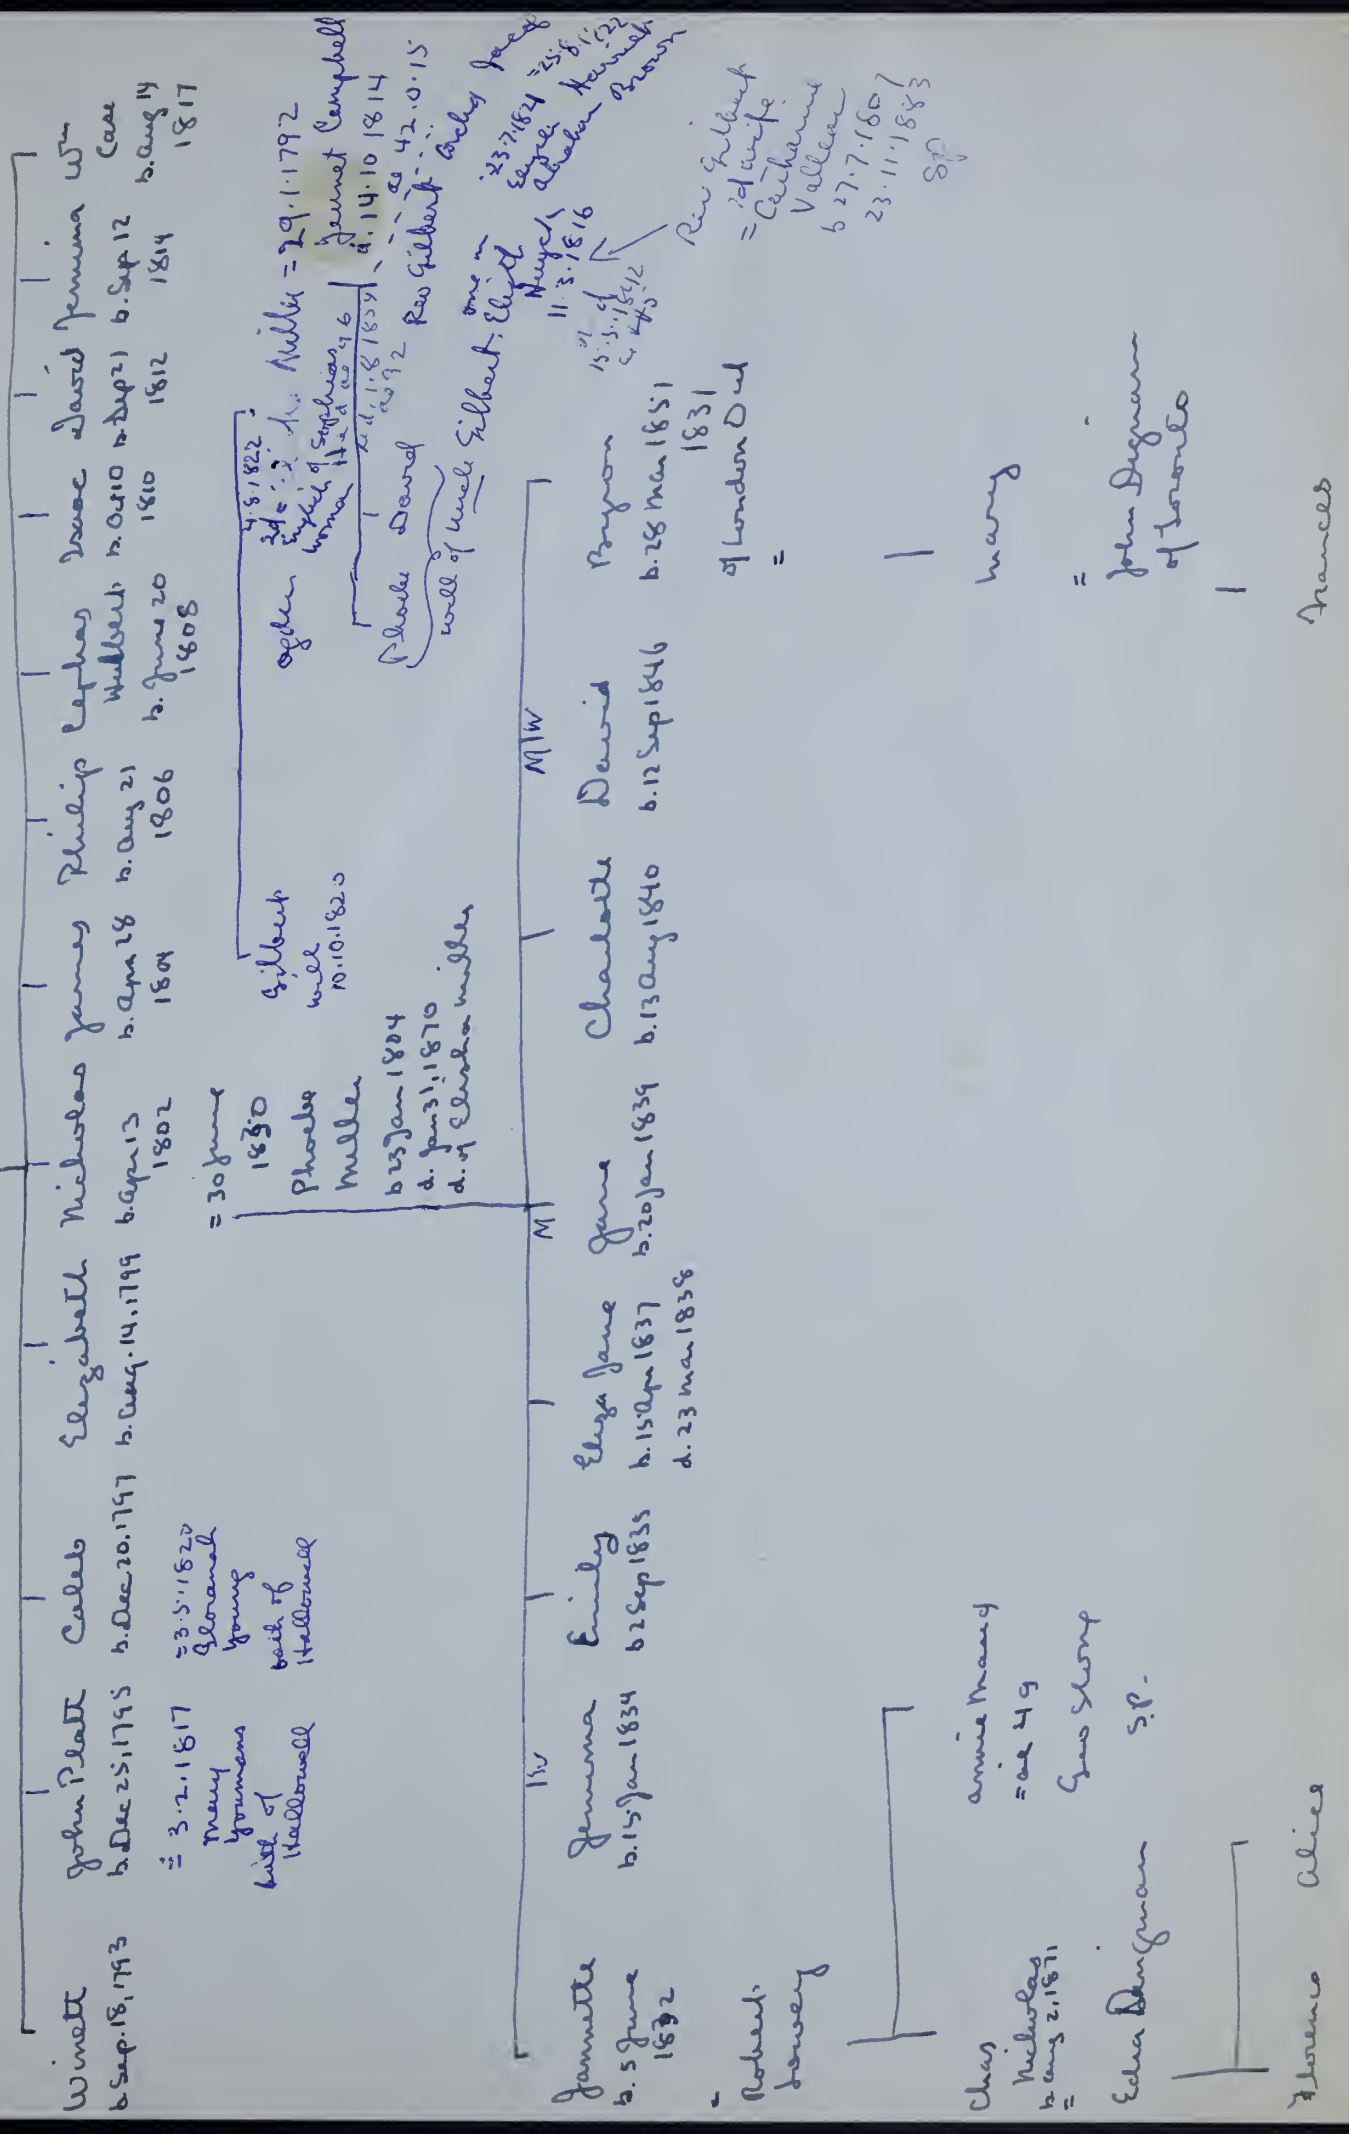 Winett
b. Sep. 18, 1793
John Platt
b. Dec 25, 1795
= 3.2.1817
Mary
Youmans
both of
Hallowell
Caleb
b. Dec. 20. 1797
= 3.5.1820
Young
both of
Hallowell
Elizabeth
b. Aug. 14. 1799
Nicholas
b. Apr. 13
1802
= 30 June
1830
Phoebe
Miller
b 23 Jan 1804
d. Jan 31, 1870
d. of Elisha Miller
James
b. Apr 28
1804
Philip
b. Aug 21
1806
Cephas
Hulbert
b. June 20
1808
Isaac
b. Oct 10
1810
David
b. Sep 21
1812
Jemima
b. Sep 12
1814
Wm
Case
b. Aug 14
1817
Gilbert
will
10.10.1820
Ogden
4.8.1822
2d =
English
woman
Sophias
d ae 46
d. 1.8.185
ae 92
Millie = 29.1.1792
Jennet Campbell
d. 14.10 1814
ae 42.0.15
Phoebe David
Rev Gilbert
will of Uncle Gilbert.
one m
Nuyck
11.3.1816
23.7.1821
Hannah
Brown
15.3.1842
Rev Gilbert
= 2d wife
Catharine
Valleau
b 27.7.180
23.11.1883
SP
Jannette
b. 5 June
1832
=
Robert
Lowery
Jemima
b. 15 Jan 1834
Emily
b 2 Sep 1835
Eliza Jane
b. 15 Apr 1837
d. 23 Mar 1838
M
Jane
b. 20 Jan 1839
Charlotte
b. 13 Aug 1840
M W
David
b. 12 Sep 1846
Byron
b. 28 Mar 1851
1831
of London Out
=
Chas
Nicholas
b Aug 2, 1871
=
Edna Dengman
Annie Maud
= ae 49
Geo Strong
S.P.
Mary
=
John Degnan
of Toronto
Florence
Alice
Frances